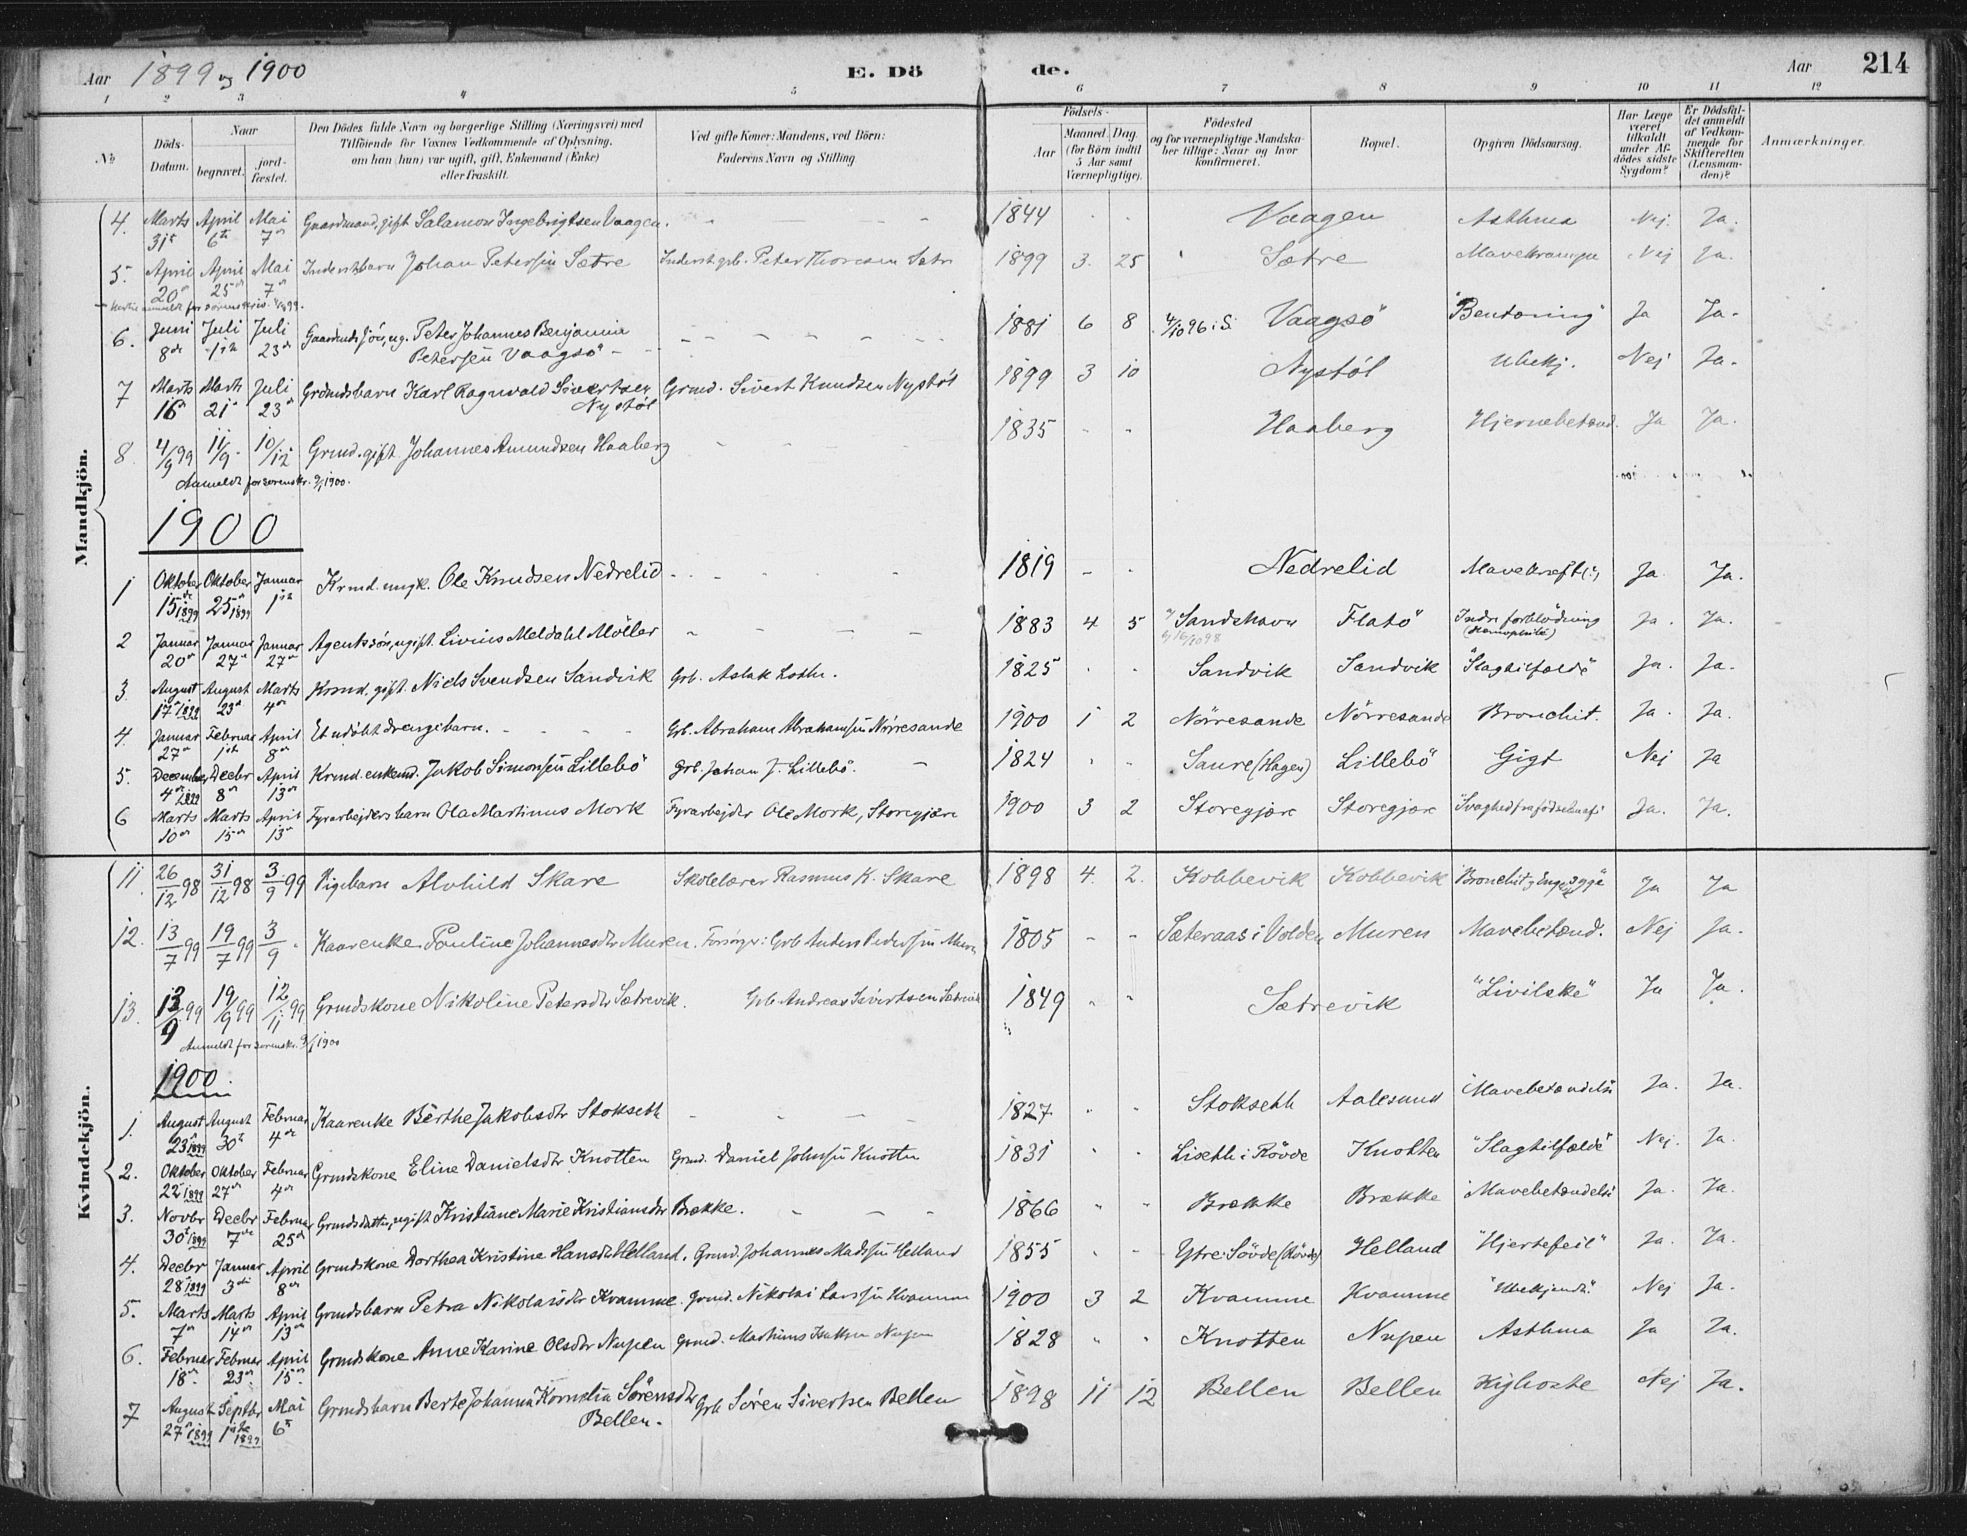 Aar 1899 og 1900 E. Dö de. Aar 214
1 2 3 4 5 6 7 8 9 10 11 12
No Döds-Datum. Naar begravet. jord-fæstet. Den Dödes fulde Navn og borgerlige Stilling (Næringsvei) med Tilföiende for Voxnes Vedkommende af Oplysning, om han (hun) var ugift, gift, Enkemand (Enke) eller fraskilt. Ved gifte Koner: Mandens, ved Börn: Faderens Navn og Stilling Födsels- Aar Maaned. Dag. (for Börn indtil 5 Aar samt Værnepligtige). Födested og for værnepligtige Mandska-ber tillige: Naar og hvor konfirmeret. Bopæl. Opgiven Dödsaarsag. Har Læge været tilkaldt under Af-dödes sidste Sygdom? Er Dödsfal-det anmeldt af Vedkom-mende for Skifteretten (Lensman-den)? Anmærkninger.
Mandkjön.
4. Marts 31te April 6te Mai 7de Gaardmand, gift Salamon Ingebrigtsen Vaagen. 1844 Vaagen Asthma Nej. Ja.
5. April 20de April 25de Mai 7de Inderstbarn Johan Petersen Sætre Inderst Peter Thoresen Sætre 1899 3. 25 Sætre Mavekrampe Nej Ja.
6. Juni 8de Juli 1ste Juli 23de Gaardmds sön, ug. Peter Johannes Benjamin Petersen Vaagsö 1881 6 8 4/10 96 i S. Vaagsö "Bentæring" Ja Ja.
7 Marts 16de Marts 21de Juli 23de Grdmdsbarn Karl Ragnvald Sivertsen Nystöl Grmd. Sivert Knudsen Nystöl 1899 3 10 Nystöl Ubekj. Nej Ja.
8. 4/9 99 11/9 10/12 Grmd. gift Johannes Amundsen Haaberg 1835 Haaberg Hjernebetænd. Ja Ja.
Anmeldt for sorenskr. 9/1 1900.
1900
1 Oktober 15de 1899 Oktober 25de 1899 Januar 1ste Krmd. ungk. Ole Knudsen Nedrelid 1819 Nedrelid Mavekræft(?) Ja Ja.
2 Januar 20de Januar 27de Januar 27de Agentssön, ugift. Livius Meldahl Möller 1883 4 5 Sandshavn Flatö Indre forblödning (Hemophili) Ja. Ja.
3. August 17de 1899 August 23de Marts 4de Krmd. gift. Niels Svendsen Sandvik Grb. Aslak 1825 Sandvik Sandvik "Slagtilfælde" Ja. Ja.
4. Januar 27de Februar 1ste April 8de Et udöbt drengebarn. Grb. Abraham Abrahamsen Nörresande 1900 1 2 Nörresande Nörresande Bronchit. Ja. Ja.
5. December 4de 1899 Decbr 8de April 13de Krmd. enkemd. Jakob Simonsen Lillebö Grb. Johan J. Lillebö. 1824 Saure (Hagen) Lillebö Gigt Nej Ja
6 Marts 10de Marts 15de April 13de Fyrarbejdersbarn Ola Martinus Mork Fyrarbejder Ole Mork, Storegjære 1900 3 2 Storegjære Storegjære "Svaghed fra födselen af" Ja. Ja.
Kvindekjön.
11. 26/12 98 31/12 98 3/9 99 Pigebarn Alvhild Skare Skolelærer Rasmus K. Skare 1898 4. 2. Kobbevik Kobbevik Ja Ja
12. 13/7 99 19/7 99 3/9 Kaarenke Pauline Johannesdtr Muren. Forsörger: Grb Anders Pedersen Muren 1805 Sæteraas i Volden Muren Mavebetænd. Nej Ja.
13. 13/9 99 19/9 99 12/11 99 Grmdskone Nikoline Petersdtr Sætrevik. Grb Andreas Sivertsen Sætrevik 1849 Sætrevik "Livilske" Ja Ja.
Anmeldt for sorenskr. 9/1 1900
1900.
1. August 23de 1899 August 30te Februar 4de Kaarenke Berthe Jakobsdtr Stokseth 1827 Stokseth Aalesund Mavebetændelse Ja. Ja.
2. Oktober 22de 1899 Oktober 27de Februar 4de Grmdskone Eline Danielsdtr Knotten Grmd. Daniel Johnsen Knotten 1831 Liseth i Rövde Knotten "Slagtilfælde" Nej. Ja.
3. Novbr 30te 1899 Decbr 7de Februar 25de Grmdsdatter, ugift Kristiane Marie Kristiansdtr Brække. 1866 Brække Brække Mavebetændelse Ja. Ja.
4. Decbr 28de 1899 Januar 3die April 8de Grmdskone Dorthea Kristine Hansdtr Helland. Grmd. Johannes Madsen Helland 1855 Ytre Sövde (Rövde) Helland "Hjertefeil" Ja. Ja.
5. Marts 7de Marts 14de April 13de Grmdsbarn Petra Nikolaisdtr Kvamme. Grmd. Nikolai Larsen Kvamme 1900 3 2 Kvamme Kvamme "Ubekjendt." Nej Ja.
6. Februar 18de Februar 23de April 15de Grmdskone Anne Karine Olsdtr Nupen Grmd. Nupen 1828 Knotten Nupen Asthma Ja Ja.
7 August 27de 1899 Septbr 1ste 1899 Mai 6te Grmdsbarn Berte Johanna Kornelia Sörensdtr Bellen. Grb Sören Sivertsen Bellen 1898 11 12 Bellen Bellen Kighoste Nej Ja.